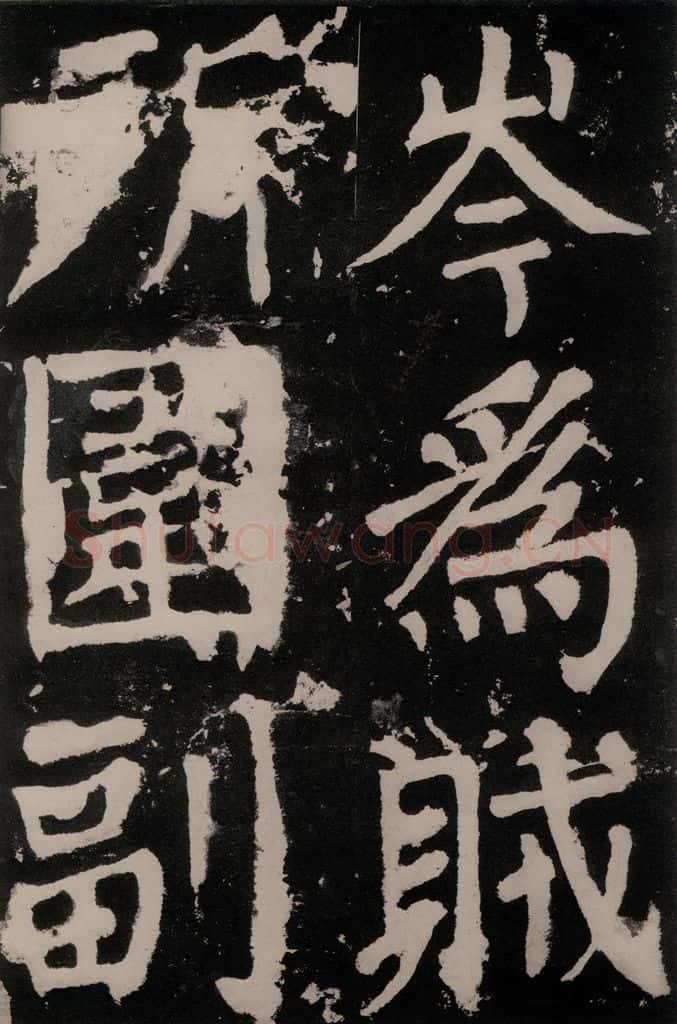 岑為賊
所圍副
Shufawang.CN